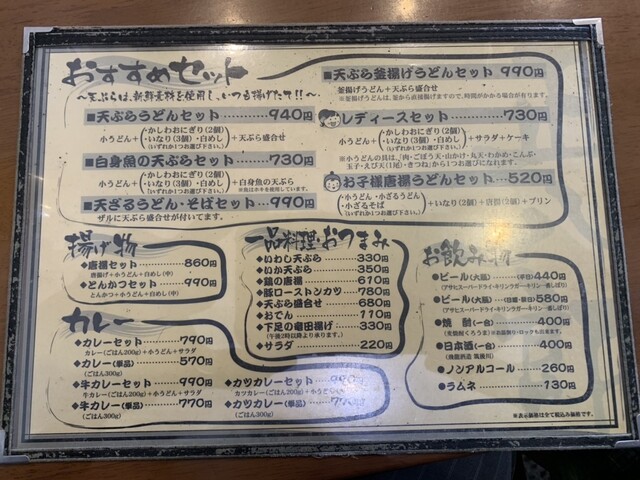 おすすめセット
〜天ぷらは、新鮮素材を使用し、いつも揚げたて!!〜
■天ぷらうどんセット……940円
小うどん+(・かしわおにぎり(2個)・いなり(3個)・白めし(いずれか1つお選び下さい。))+天ぷら盛合せ
■白身魚の天ぷらセット……730円
小うどん+(・かしわおにぎり(2個)・いなり(3個)・白めし(いずれか1つお選び下さい。))+白身魚の天ぷら
■天ざるうどん・そばセット…990円
ザルに天ぷら盛合せが付いてます。
■天ぷら釜揚げうどんセット 990円
釜揚げうどん+天ぷら盛合せ
※釜揚げうどんは、釜から直接揚げますので、時間がかかる場合が有ります。
レディースセット……730円
小うどん+(・かしわおにぎり(2個)・いなり(3個)・白めし(いずれか1つお選び下さい。))+サラダ+ケーキ
※小うどんの具は、「肉・ごぼう天・山かけ・丸天・わかめ・こんぶ・玉子・えび天(1尾)・きつね」から1つお選びになれます。
お子様唐揚うどんセット…520円
(・小うどん・小ざるうどん・小ざるそば(いずれか1つお選び下さい。))+いなり(2個)+唐揚(2個)+プリン
揚げ物
◆唐揚セット……860円
唐揚げ+小うどん+白めし(中)
◆とんかつセット……990円
とんかつ+小うどん+白めし(中)
カレー
◆カレーセット……790円
カレー(ごはん200g)+小うどん+サラダ
◆カレー(単品)……570円
(ごはん300g)
◆牛カレーセット……990円
牛カレー(ごはん200g)+小うどん+サラダ
◆牛カレー(単品)……770円
(ごはん300g)
◆カツカレーセット……990円
カツカレー(ごはん200g)+小うどん+サラダ
◆カツカレー(単品)……
(ごはん300g)
一品料理・おつまみ
◆いわし天ぷら……330円
◆いか天ぷら……350円
◆鶏の唐揚……610円
◆豚ローストンカツ…780円
◆天ぷら盛合せ……680円
◆おでん……110円
◆下足の竜田揚げ…330円
(午後2時以降より承ります。)
◆サラダ……220円
お飲み物
●ビール(大瓶)……(平日)440円
(アサヒスーパードライ・キリンラガー・キリン一番しぼり)
●ビール(大瓶)…(日曜・祭日)580円
(アサヒスーパードライ・キリンラガー・キリン一番しぼり)
●焼酎(一合)……400円
●日本酒(一合)……400円
●ノンアルコール……260円
●ラムネ……130円
※表示価格は全て税込み価格です。